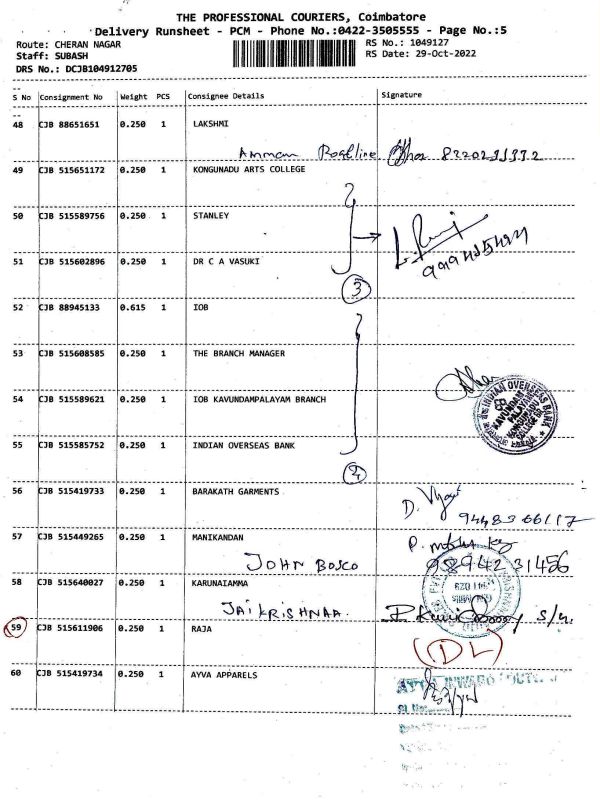 THE PROFESSIONAL COURIERS, Coimbatore
Delivery Runsheet - PCM - Phone No.:0422-3505555 - Page No.:5
Route: CHERAN NAGAR RS No.: 1049127
Staff: SUBASH RS Date: 29-Oct-2022
DRS No.: DCJB104912705
S No Consignment No Weight PCS Consignee Details Signature
48 CJB 88651651 0.250 1 LAKSHMI
Amman
49 CJB 515651172 0.250 1 KONGUNADU ARTS COLLEGE
50 CJB 515589756 0.250 1 STANLEY
51 CJB 515602896 0.250 1 DR C A VASUKI
3
52 CJB 88945133 0.615 1 IOB
53 CJB 515608585 0.250 1 THE BRANCH MANAGER
54 CJB 515589621 0.250 1 IOB KAVUNDAMPALAYAM BRANCH
INDIAN OVERSEAS BANK
55 CJB 515585752 0.250 1 INDIAN OVERSEAS BANK
56 CJB 515419733 0.250 1 BARAKATH GARMENTS
57 CJB 515449265 0.250 1 MANIKANDAN
JOHN BOSCO 9894231456
58 CJB 515640027 0.250 1 KARUNAIAMMA
JAIKRISHNAA.
59 CJB 515611906 0.250 1 RAJA
(DL)
60 CJB 515419734 0.250 1 AYVA APPARELS